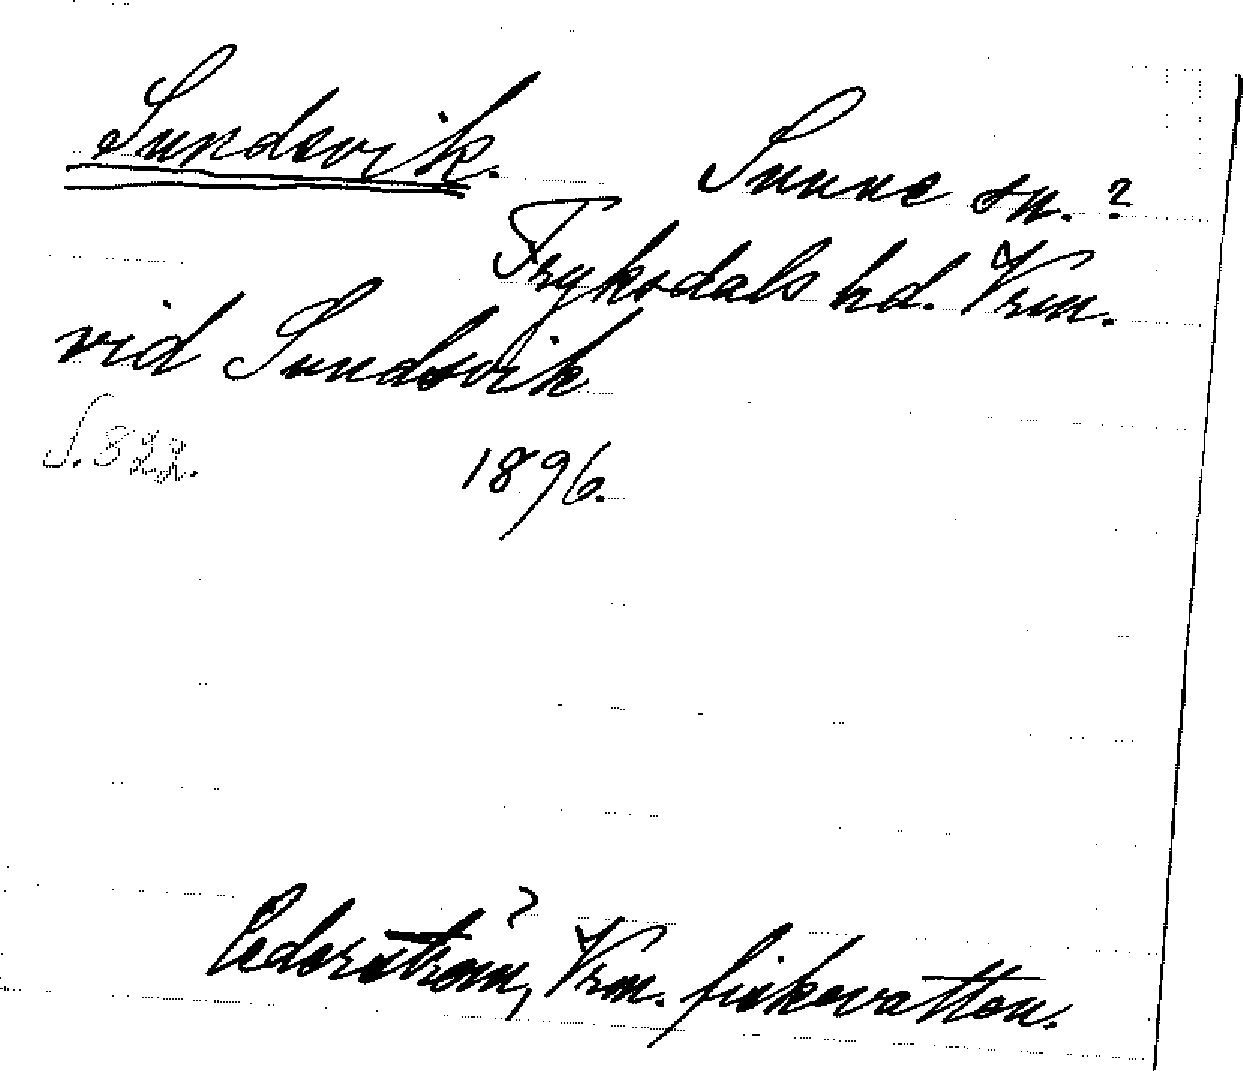 Sundsvik. Sunne sn. ?
Fryksdals hd. Vrm.
vid Sundsvik
S. 322.
1896.
Cederström, Vrm. fiskevatten.